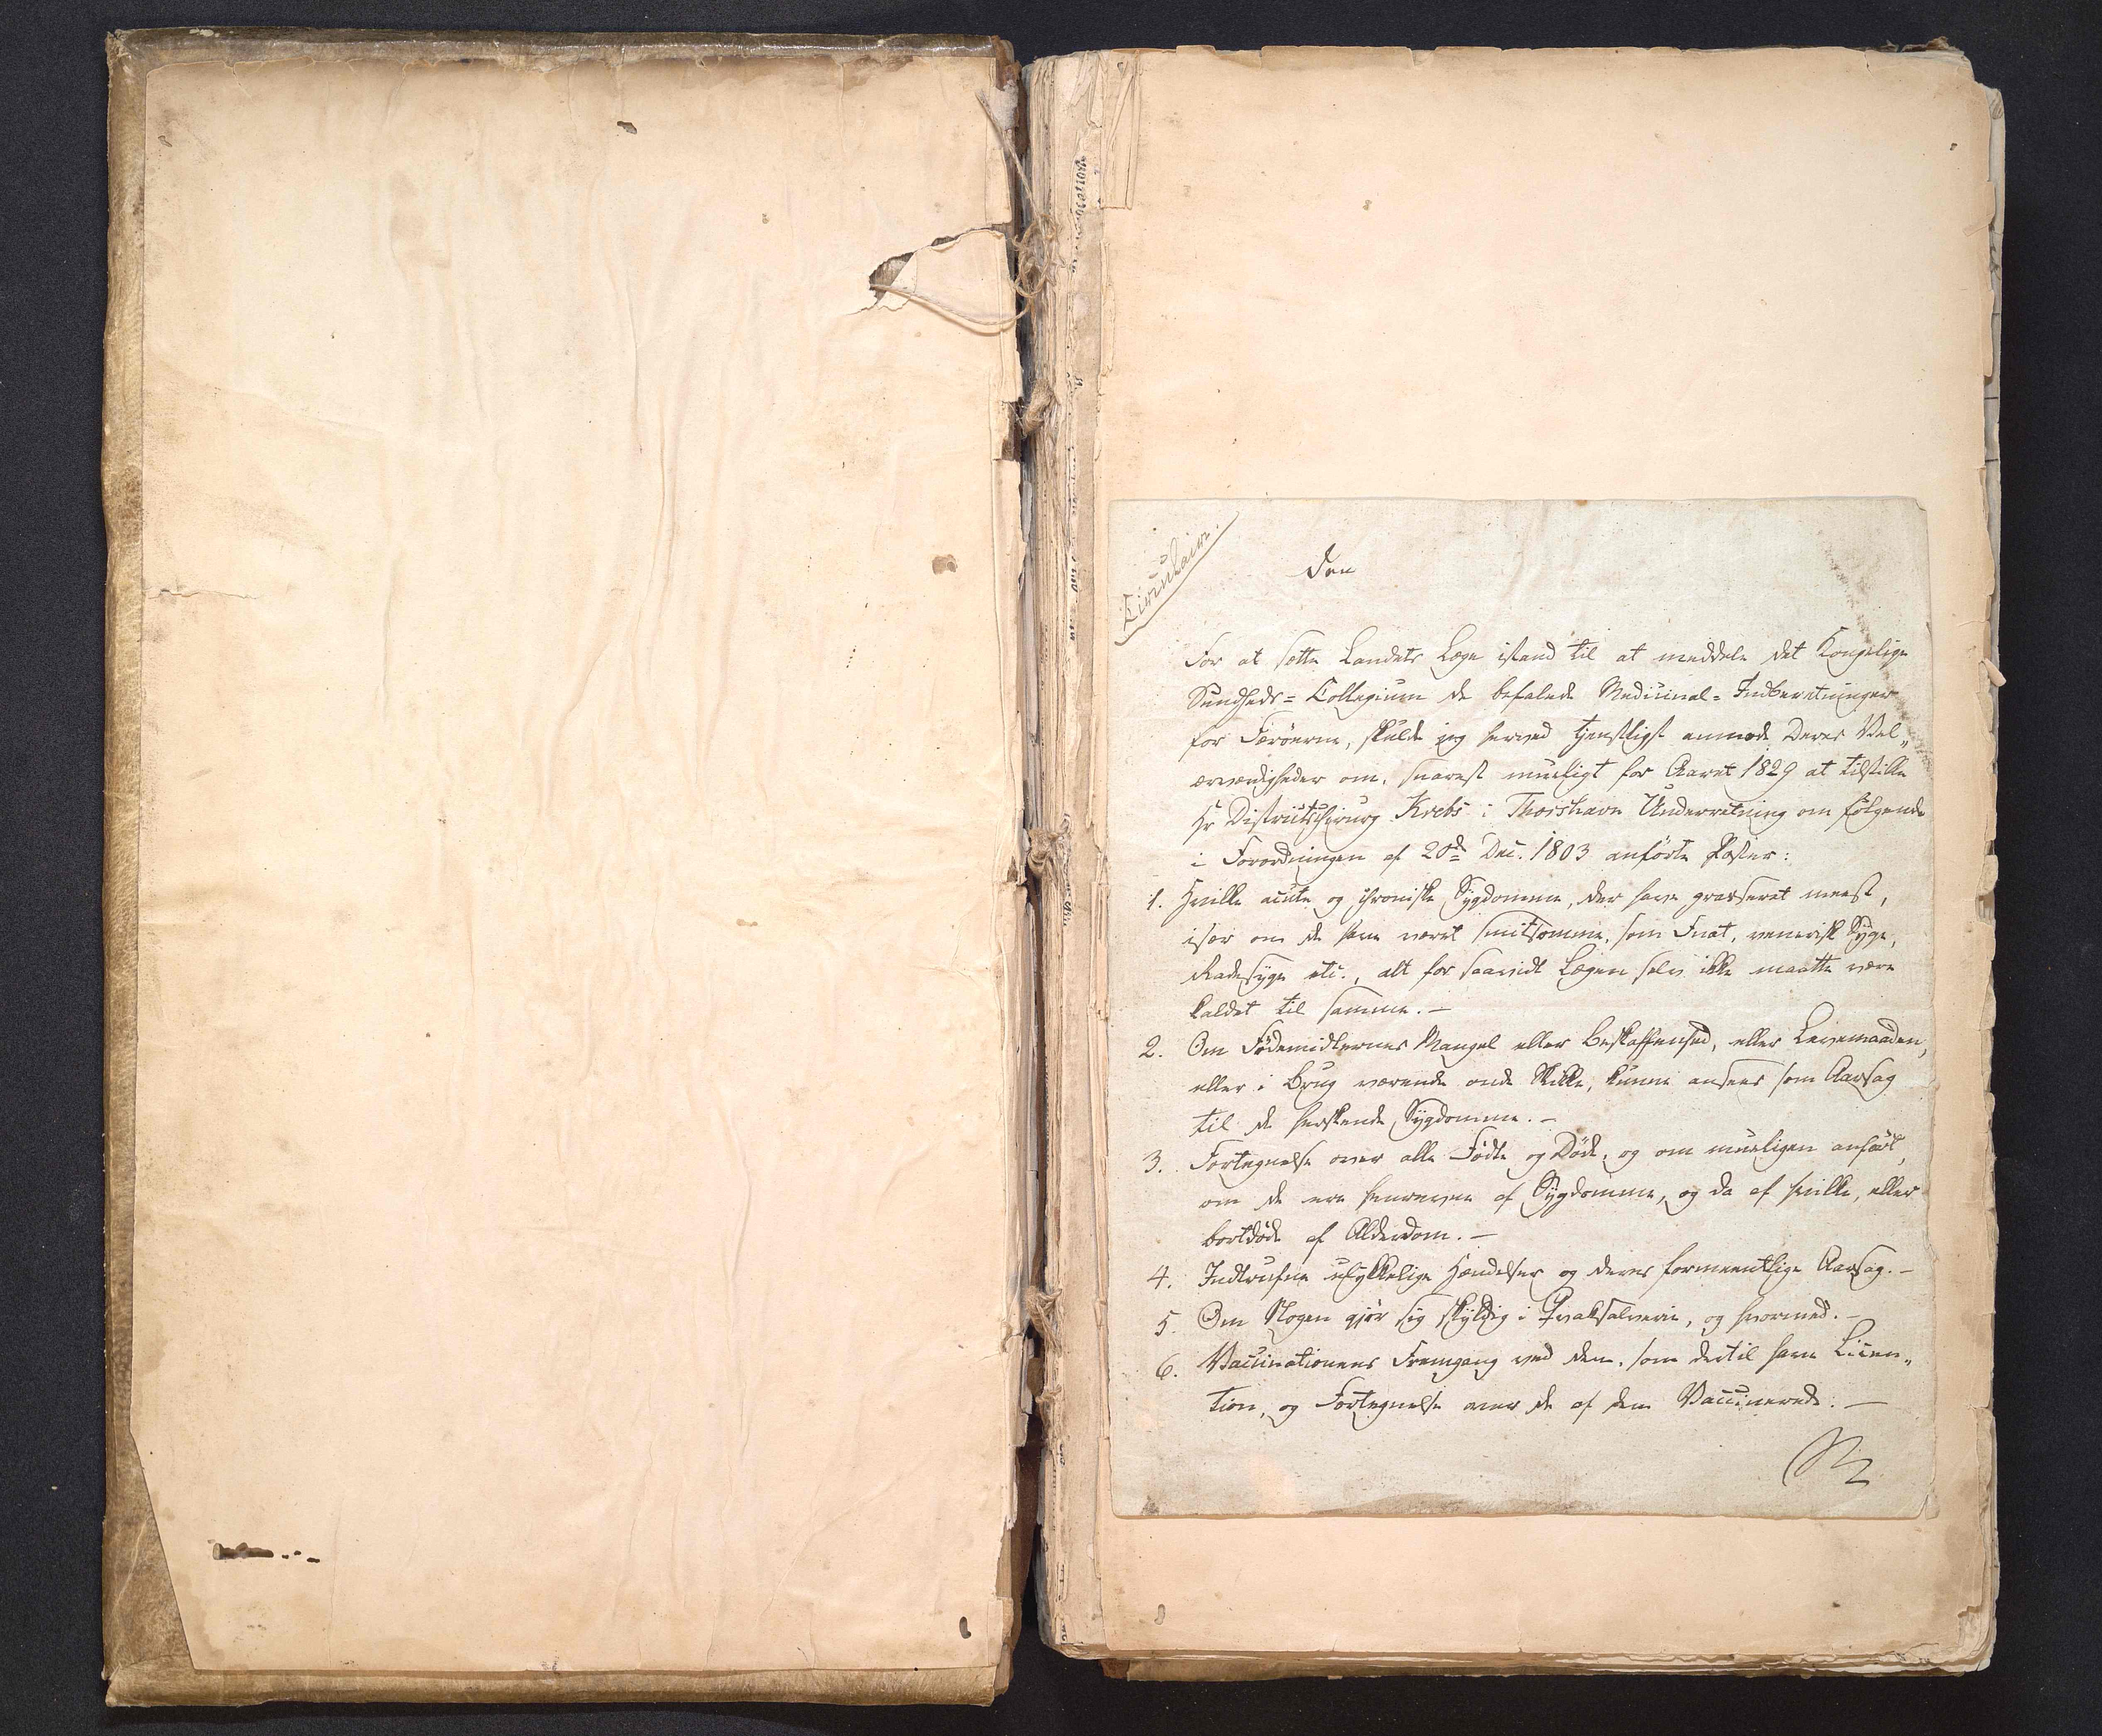 Circulaire.
Den
For at sætte Landets Læge istand til at meddele det Kongelige
Sundheds=Collegium de befalede Medicinal=Indberetninger
for Færöerne, skulde jeg herved tjenstligst anmode Deres Vel„
ærværdigheder om, snarest mueligt for Aaret 1829 at tilstille
Hr Districtschirurg Krebs i Thorshavn Underretning om følgende
i Forordningen af 20de Dec. 1803 anførte Poster:
1. Hvilke acute og chroniske Sygdomme, der have grasseret meest,
især om de have været smitsomme, som Fnat, venerisk Syge,
Radesyge etc., alt for saavidt Lægen selv ikke maatte være
kaldet til samme.—
2. Om Födemidlernes Mangel eller Beskaffenhed, eller Levemaaden,
eller i Brug værende onde Skikke, kunne ansees som Aarsag
til de herskende Sygdomme.—
3. Fortegnelse over alle Födte og Döde, og om mueligen anført,
om de ere henrevne af Sygdomme, og da af hvilke, eller
bortdöde af Alderdom.—
4. Indtrufne ulykkelige Hændelser og deres formeentlige Aarsag.—
5. Om Nogen gjør sig skyldig i Qvaksalverie, og hvormed.—
6. Vaccinationens Fremgang ved dem, som dertil have Licen„
tion, og Fortegnelse over de af dem Vaccinerede.—